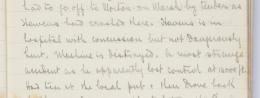 had to go off to Moreton-on-Marsh by Timber as
Stevens had crashed there. Stevens is in
hospital with concussion but not dangerously
hurt. Machine is destroyed. A most strange
accident as he apparently lost control at 1000 ft.
Had tea at the local pub & then Drove back